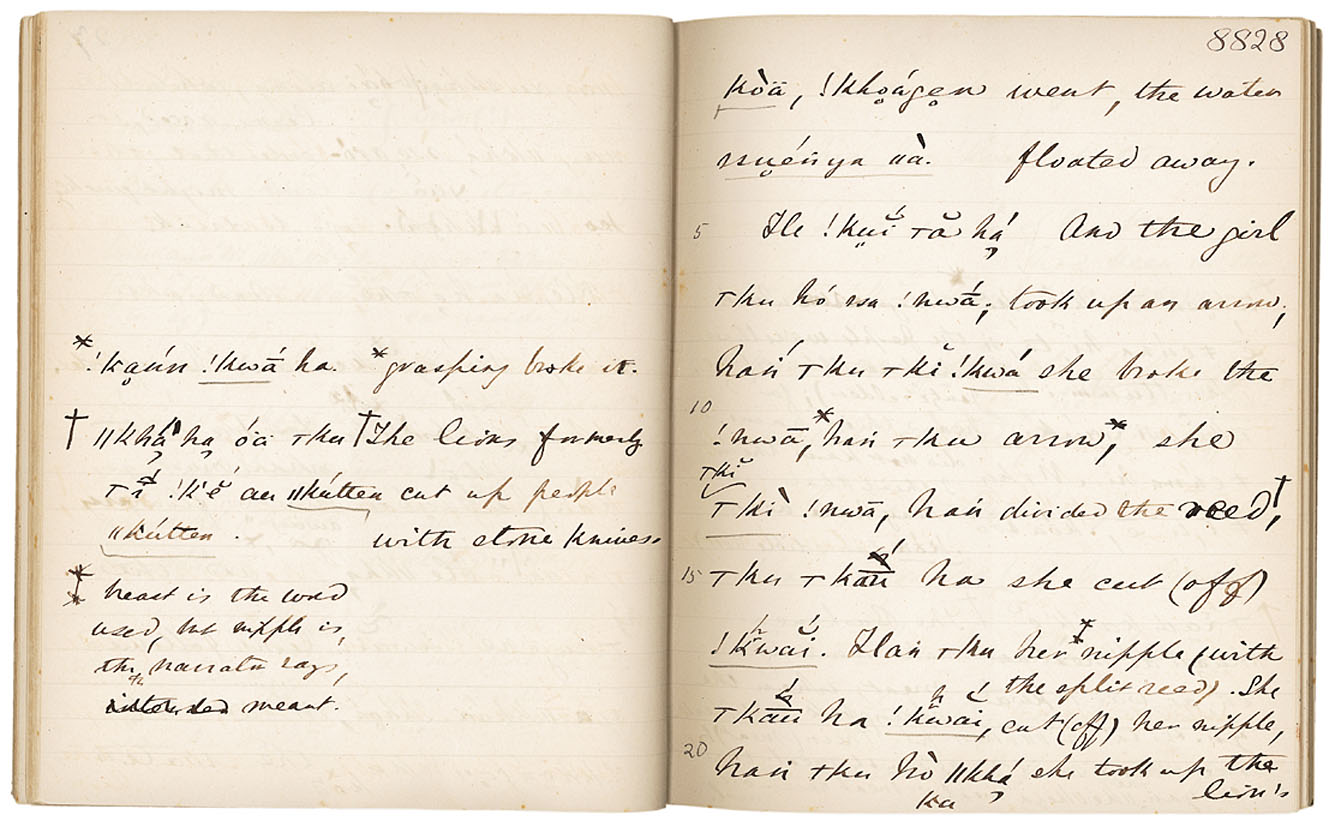 * !kạún !kwā́ ha. * grasping broke it.
† ǁkhā́ ha̦ óä ꞇku † The lions formerly
ꞇī́ !k'ĕ́ au ǁkútten cut up people
ǁkútten. with stone knives.
‡ breast is the word
used, but nipple is,
the narrator says,
meant.
8828
kòä, !khọágẹn went, the water
ssụéñya üà. floated away.
5 He !kṵĭ́ ꞇă há̦ And the girl
ꞇku hó ssa !nwā́; took up an arrow;
haṅ́ ꞇku ꞇkĭ !kwá she broke the
10 !nwā,* haṅ ꞇku arrow*, she
ꞇkĭ
ꞇkì !nwā, haṅ divided the reed†,
15 ha she cut (off)
!kwãí. Haṅ ꞇku her ‡ nipple (with
the split reed). She
ha !kwãí, cut (off) her nipple,
20 haṅ ꞇku hò ǁkhá̦ she took up the
ka lion's